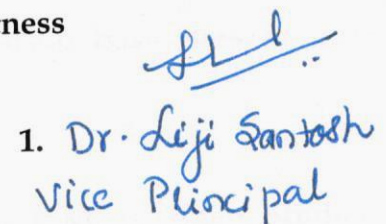 rness
1. Dr. Liji Santosh
Vice Principal